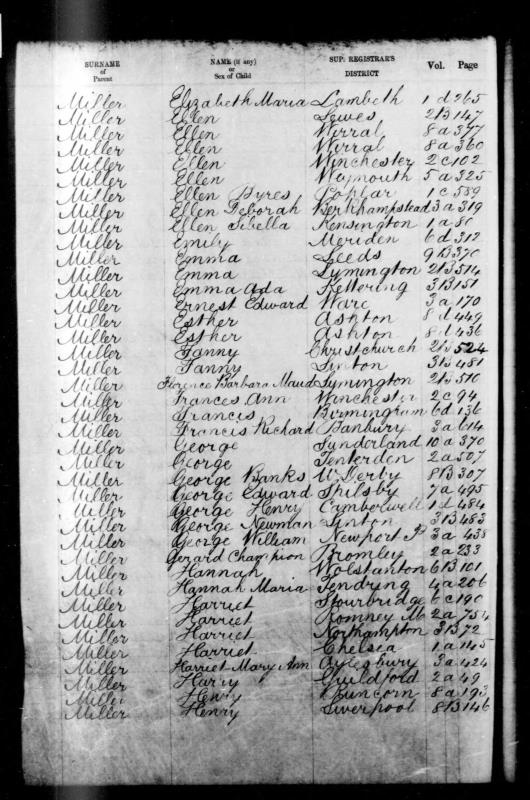 SURNAME of Parent NAME (if any) or Sex of Child SUP: REGISTRAR'S DISTRICT Vol. Page
Miller Elizabeth Maria Lambeth 1 d 265
Miller Ellen Lewes 2B 147
Miller Ellen Wirral 8a 347
Miller Ellen Wirral 8a 360
Miller Ellen Winchester 2c 102
Miller Ellen Weymouth 5a 325
Miller Ellen Byres Poplar 1c 589
Miller Ellen Deborah Berkhampstead 3a 319
Miller Ellen Sibella Kensington 1a 80
Miller Emily Meriden 6d 312
Miller Emma Leeds 9B 370
Miller Emma Lymington 2B 514
Miller Emma Ada Kettering 3B 151
Miller Ernest Edward Ware 3a 170
Miller Esther Ashton 8d 449
Miller Esther Ashton 8d 436
Miller Fanny Christchurch 2B 524
Miller Fanny Linton 3B 481
Miller Florence Barbara Maud Lymington 2B 510
Miller Frances Ann Winchester 2c 94
Miller Francis Birmingham 6d 136
Miller Francis Richard Banbury 3a 614
Miller George Sunderland 10a 370
Miller George Tenterden 2a 507
Miller George Banks W. Derby 8B 307
Miller George Edward Spilsby 7a 495
Miller George Henry Camberwell 1d 484
Miller George Newman Linton 3B 483
Miller George William Newport P. 3a 438
Miller Gerard Champion Bromley 2a 233
Miller Hannah Wolstanton 6B 101
Miller Hannah Maria Tendring 4a 206
Miller Harriet Stourbridge 6c 190
Miller Harriet Romney M. 2a 754
Miller Harriet Northampton 3B 72
Miller Harriet Chelsea 1a 145
Miller Harriet Mary Ann Aylesbury 3a 424
Miller Harry Guildford 2a 49
Miller Henry Runcorn 8a 193
Miller Henry Liverpool 8B 146